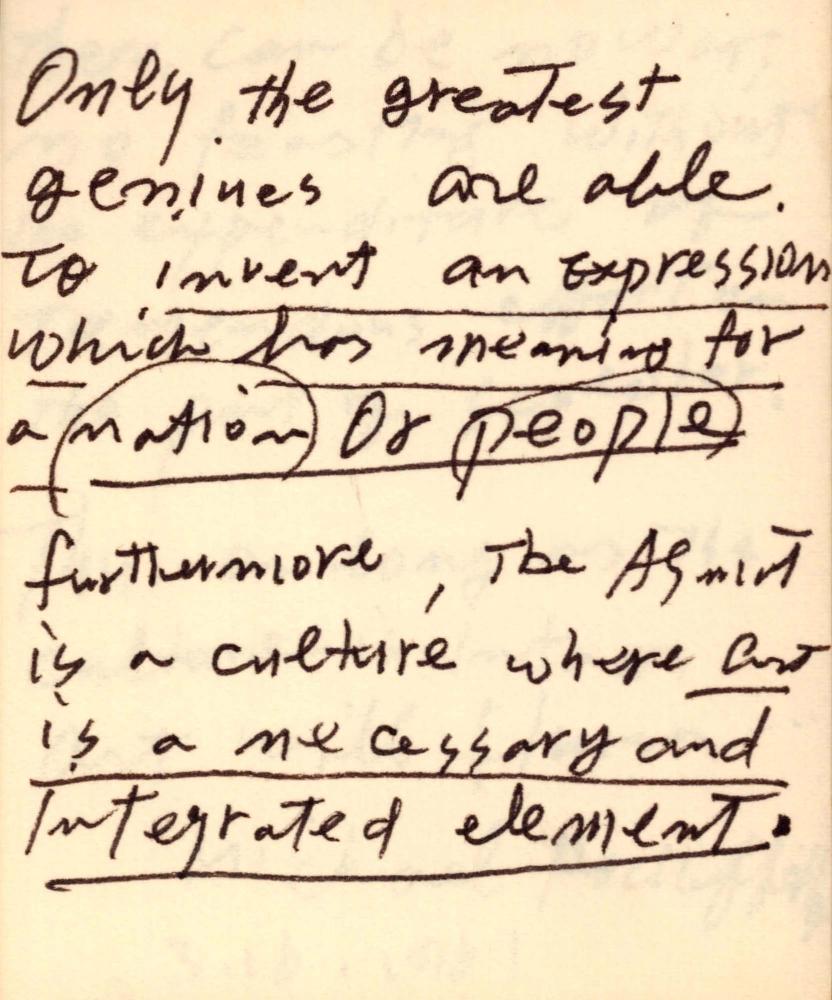 Only the greatest
geniues are able.
To invent an expression
which has meaning for
a nation Or people
furthermore, The Asmat
is a culture where art
is a necessary and
Integrated element.